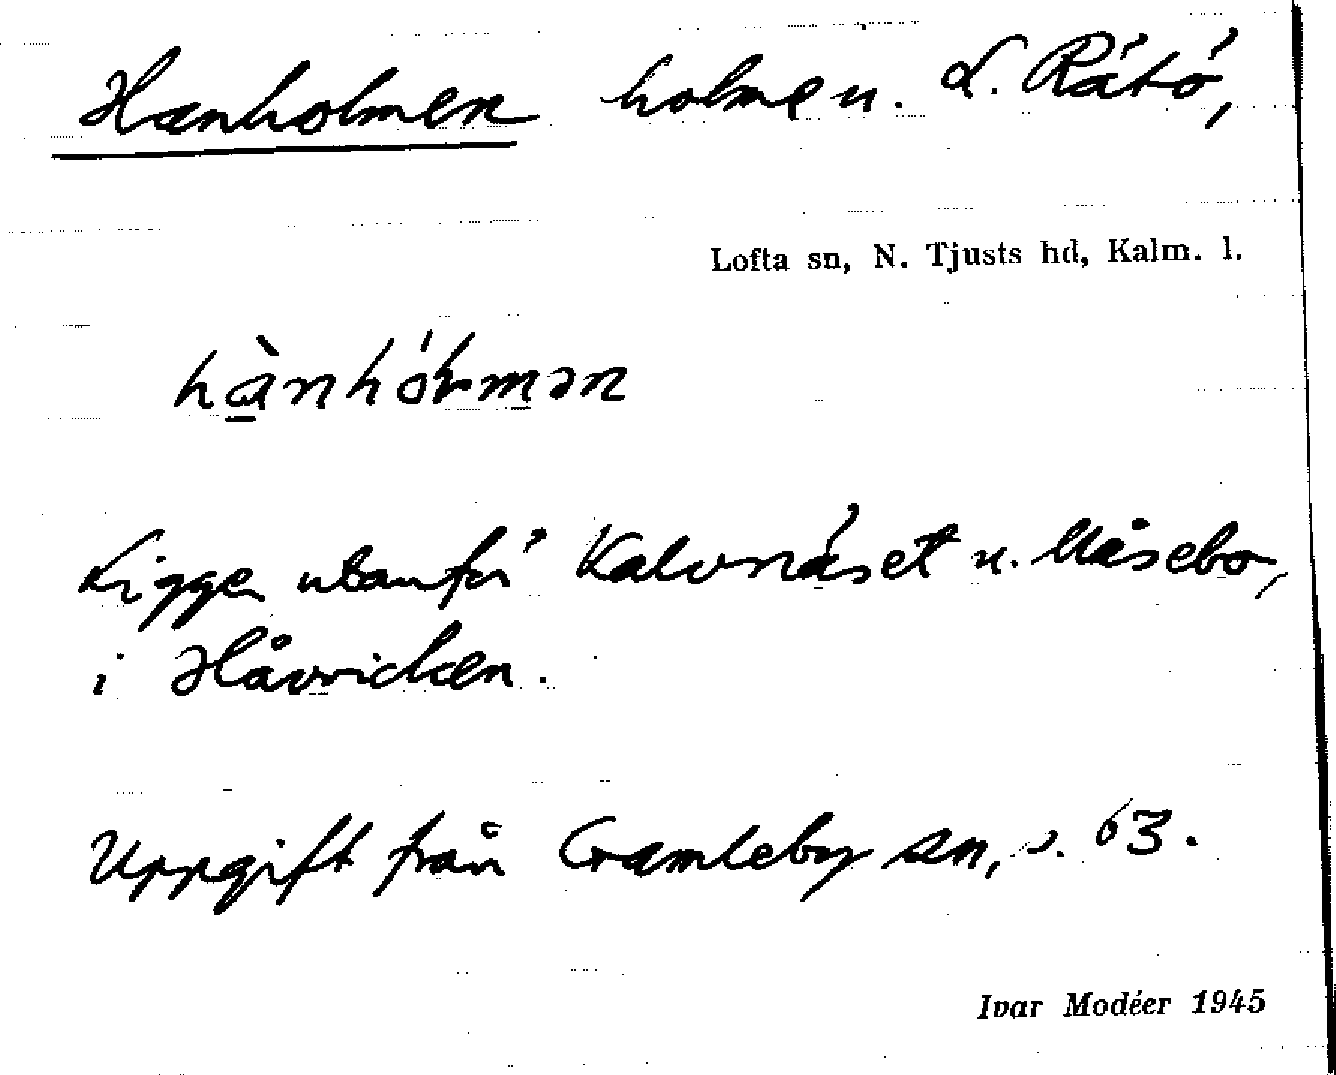 Hanholmen holme u. L. Rätö,
Lofta sn, N. Tjusts hd, Kalm. l.
hànhólmən
Ligger utanför Kalvnäset u. Måsebo,
i Håvvicken.
Uppgift från Gamleby sn, s. 63.
Ivar Modéer 1945